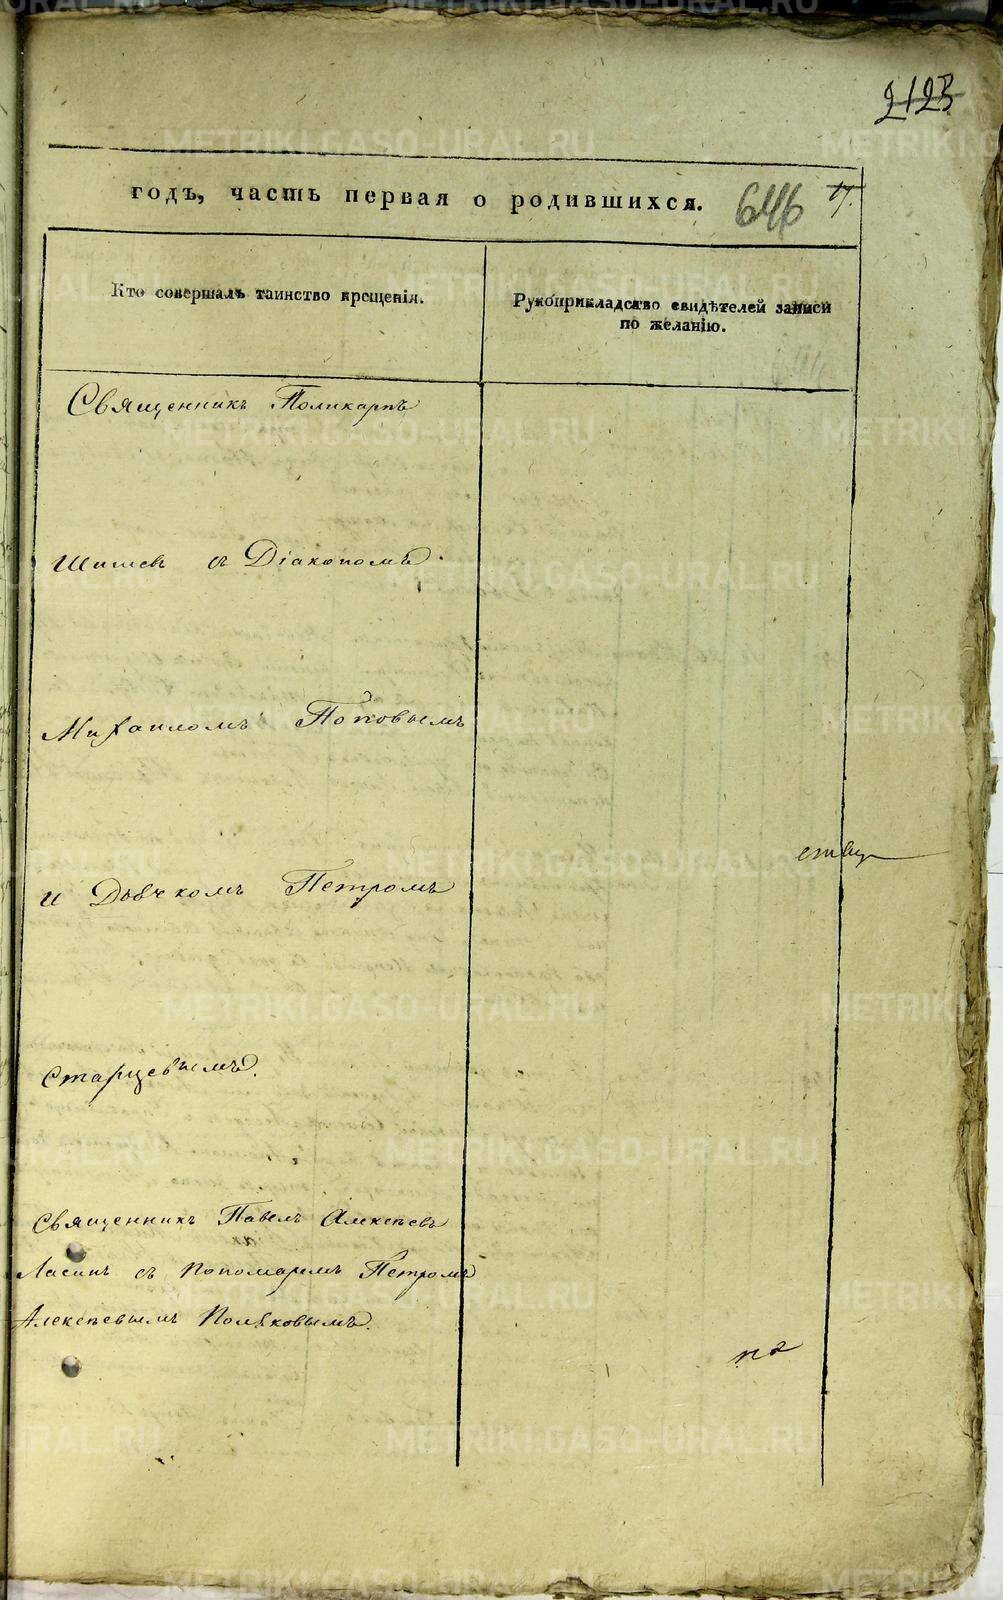 2123
годъ, часть первая о родившихся. 646
Кто совершалъ таинство крещенія.
Рукоприкладство свидѣтелей записи
по желанію.
Священникъ Поликарпъ
Шишев съ Діакономъ
Михаиломъ Поповымъ
и Дьячкомъ Петромъ
Старцевымъ.
Священникъ Павелъ Алексѣевъ
Ласинъ съ Пономаремъ Петромъ
Алексѣевымъ Поляковымъ.
METRIKI.GASO-URAL.RU